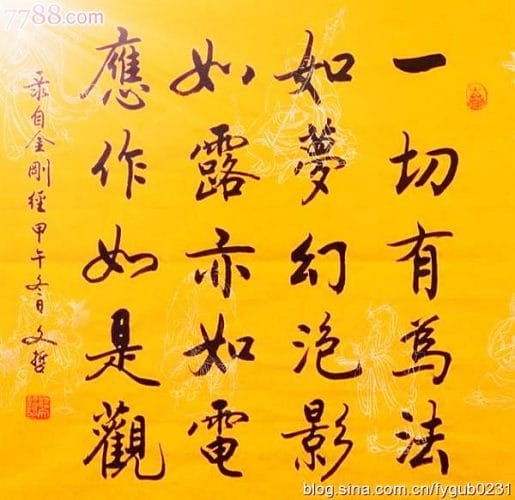 一切有為法
如夢幻泡影
如露亦如電
應作如是觀
录自金剛經甲午冬日文哲
7788.com
blog.sina.com.cn/fygub0231